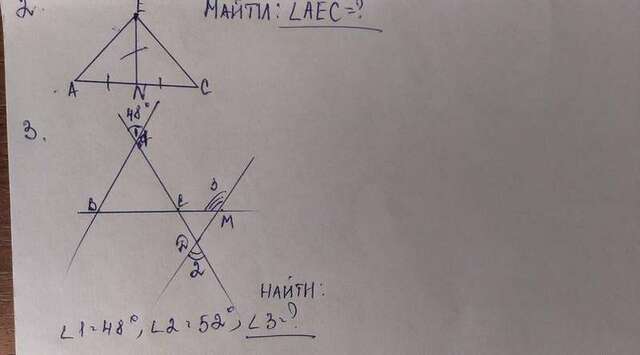 2. E НАЙТИ: ∠AEC=?
A N C
3. 48°
1 A
B C 3 M
D
2
НАЙТИ:
∠1=48°, ∠2=52°, ∠3=?